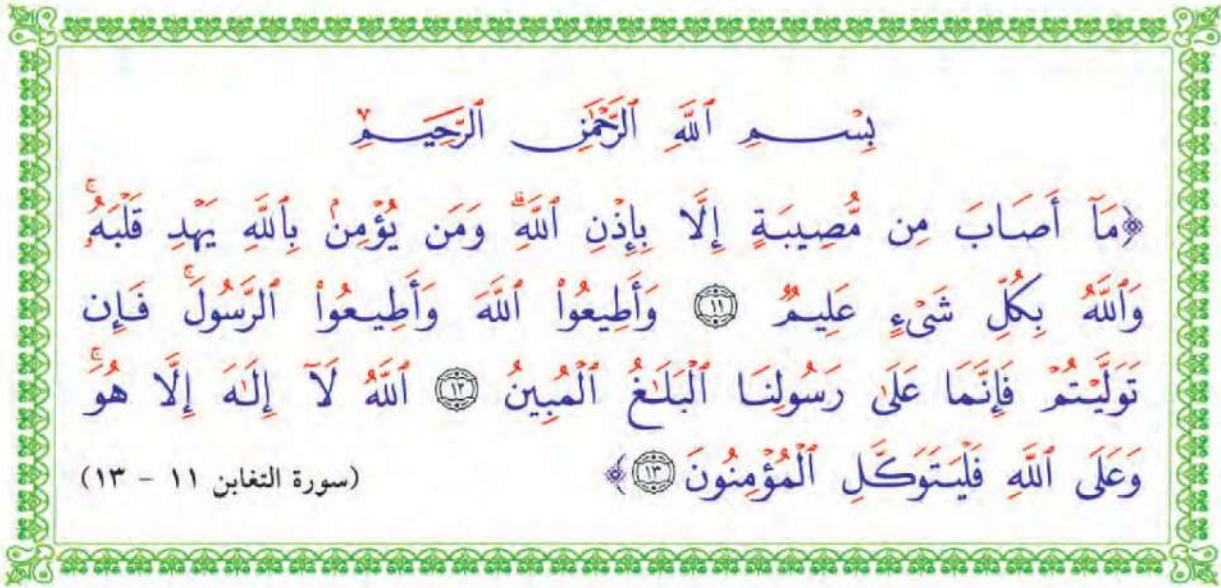 بِسْمِ ٱللَّهِ ٱلرَّحْمَٰنِ ٱلرَّحِيمِ
﴿مَآ أَصَابَ مِن مُّصِيبَةٍ إِلَّا بِإِذْنِ ٱللَّهِۗ وَمَن يُؤْمِنۢ بِٱللَّهِ يَهْدِ قَلْبَهُۥۚ
وَٱللَّهُ بِكُلِّ شَىْءٍ عَلِيمٌ ١١ وَأَطِيعُوا۟ ٱللَّهَ وَأَطِيعُوا۟ ٱلرَّسُولَۚ فَإِن
تَوَلَّيْتُمْ فَإِنَّمَا عَلَىٰ رَسُولِنَا ٱلْبَلَٰغُ ٱلْمُبِينُ ١٢ ٱللَّهُ لَآ إِلَٰهَ إِلَّا هُوَۚ
وَعَلَى ٱللَّهِ فَلْيَتَوَكَّلِ ٱلْمُؤْمِنُونَ ١٣﴾ (سورة التغابن ١١ - ١٣)